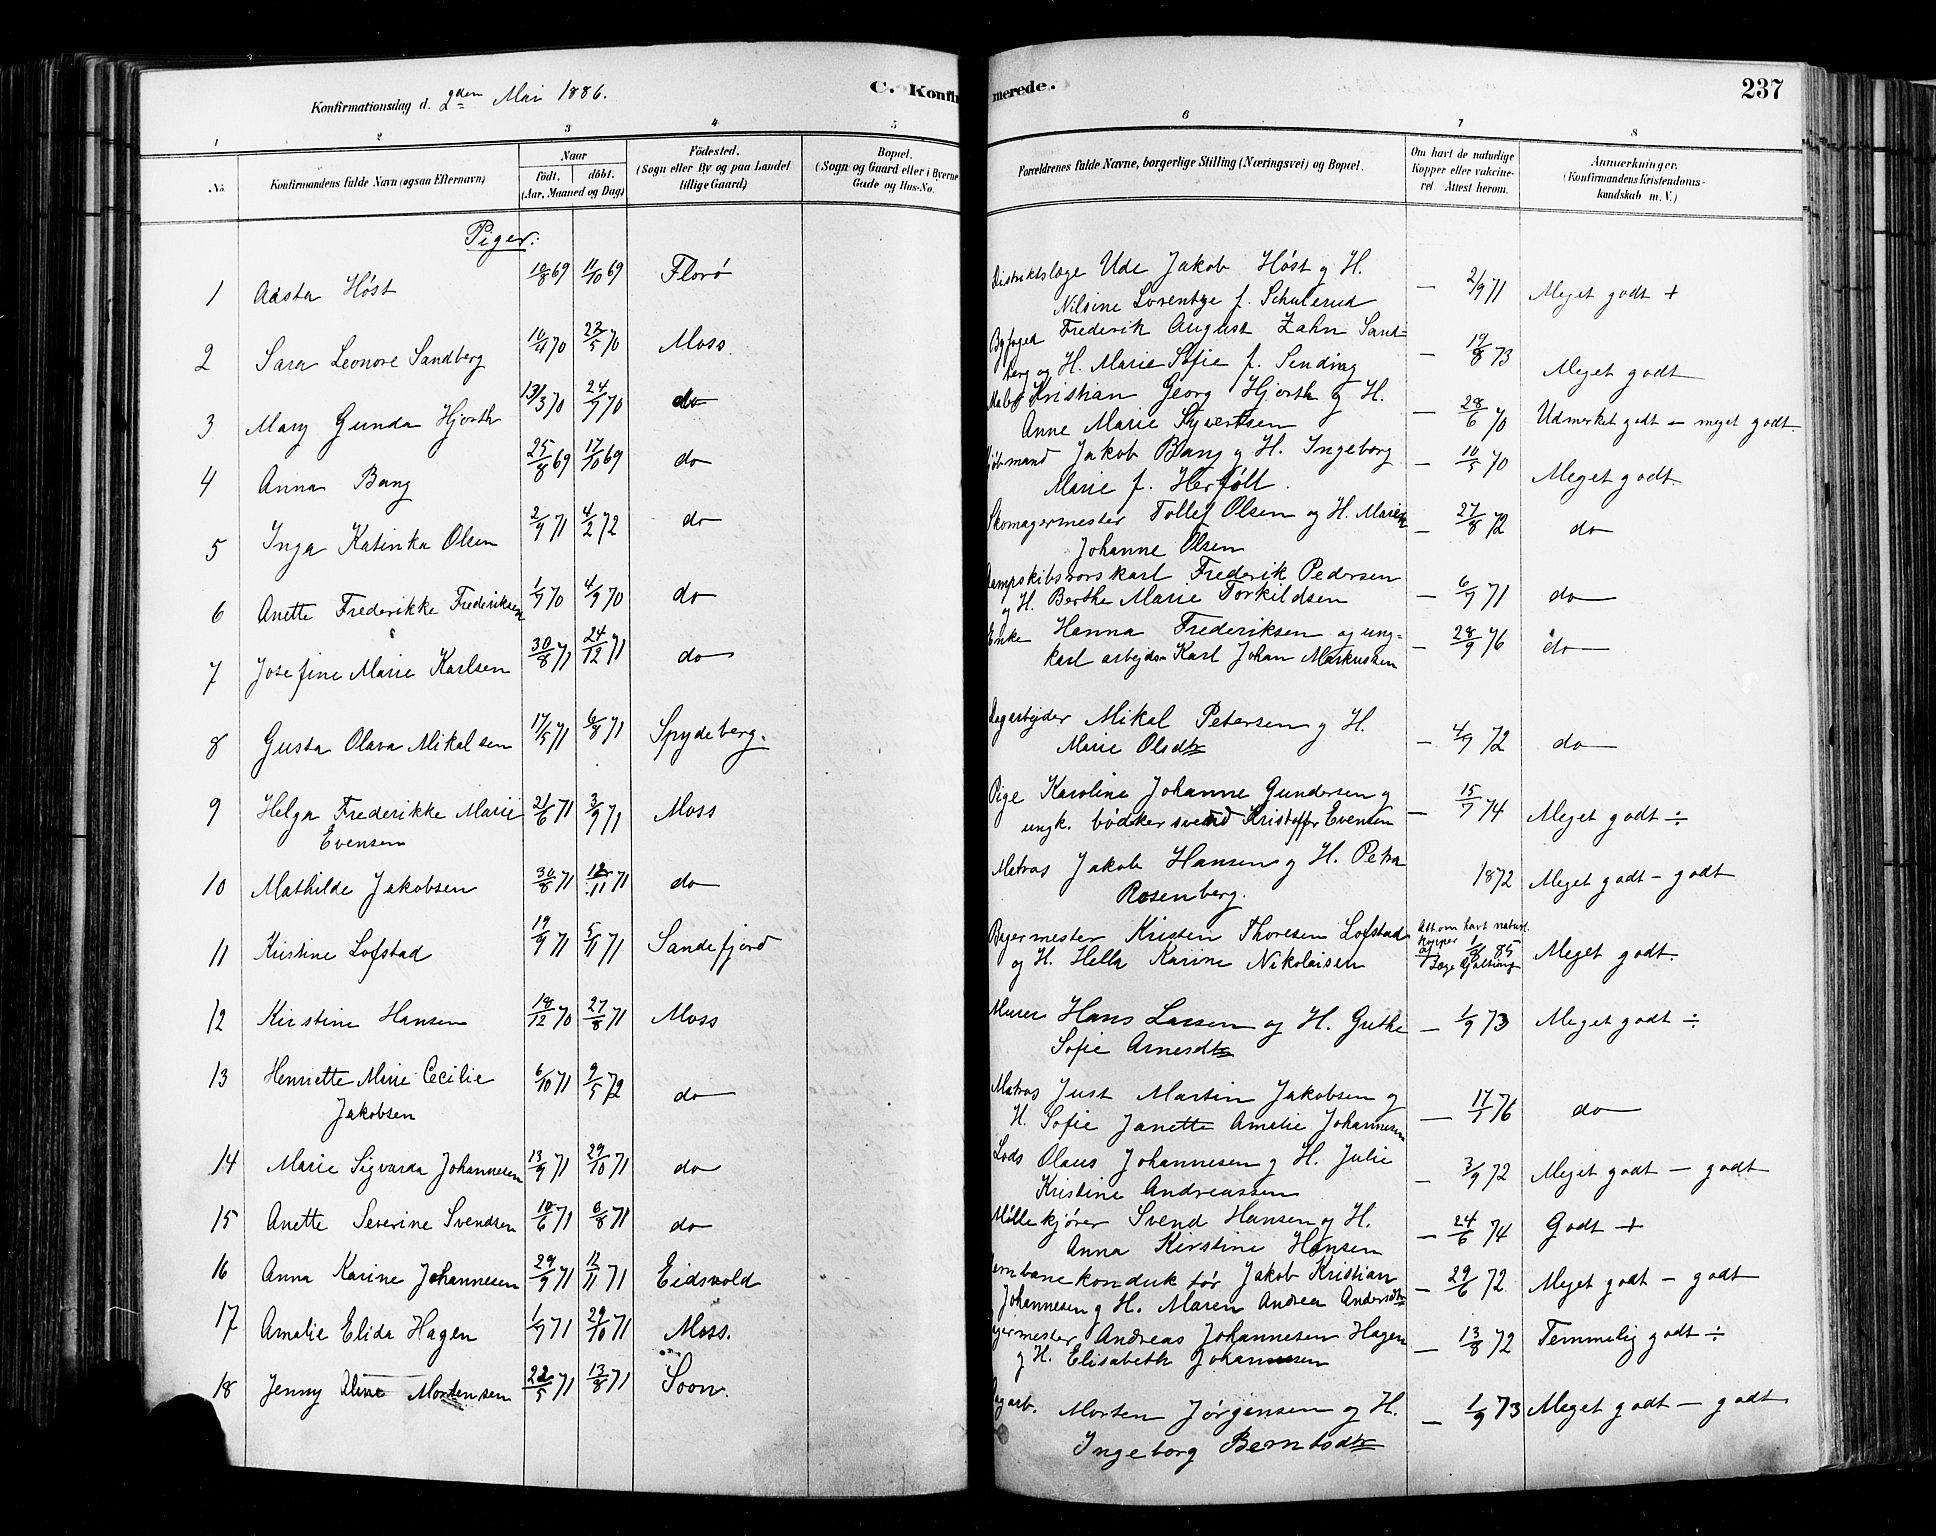 Konfirmationsdag d. 2den Mai 1886.
C. Konfirmerede.
237
1 2 3 4 5 6 7 8
No.
Konfirmandens fulde Navn (ogsaa Efternavn)
Naar
födt. döbt.
(Aar, Maaned og Dag)
Födested.
(Sogn eller By og paa Landet
tillige Gaard)
Bopæl.
(Sogn og Gaard eller i Byerne
Gade og Hus-No.
Forældrenes fulde Navne, borgerlige Stilling (Næringsvei) og Bopæl.
Om havt de naturlige
Kopper eller vakcine-
ret Attest herom.
Anmærkninger.
(Konfirmandens Kristendoms-
kundskab m. V.)
Piger:
1 Aasta Höst 10/8 69 11/10 69 Florö Distriktslæge Ude Jakob Höst og H.
Nilsine Lorentze f. Schulerud — 2/9 71 Meget godt +
2 Sara Leonore Sandberg 10/4 70 22/5 70 Moss Byfoged Frederik August Zahn Sand-
berg og H. Marie Sofie f. Sending — 19/8 73 Meget godt
3 Mary Gunda Hjorth 13/3 70 24/7 70 do Kristian Georg Hjorth og H.
Anne Marie Syvertsen — 28/6 70 Udmerket godt - meget godt.
4 Anna Bang 25/8 69 17/10 69 do Jakob Bang og H. Ingeborg
Marie f. Herföll. — 10/5 70 Meget godt.
5 Inga Katinka Olsen 2/9 71 4/2 72 do Skomagermester Tollef Olsen og H. Maren
Johanne Olsen — 27/8 72 do
6 Anette Frederikke Frederiksen 1/7 70 4/9 70 do Frederik Pedersen
og H. Berthe Marie Torkildsen — 6/7 71 do
7 Josefine Marie Karlsen 30/8 71 24/12 71 do Enke Hanna Frederiksen og ung-
karl arbejder Karl Johan Markussen — 28/9 76 do
8 Gusta Olava Mikalsen 17/5 71 6/8 71 Spydeberg. Dagarbejder Mikal Petersen og H.
Marie Olsdtr — 4/9 72 do
9 Helga Frederikke Marie
Evensen 21/6 71 3/9 71 Moss Pige Karoline Johanne Gundersen og
ungk. bödkersvend Kristoffer Evensen — 15/7 74 Meget godt ÷
10 Mathilde Jakobsen 30/8 71 12/11 71 do Matros Jakob Hansen og H. Petra
Rosenberg. 1872 Meget godt - godt
11 Kristine Lofstad 19/9 71 5/11 71 Sandefjord Bagermester Kristen Thoresen Lofstad
og H. Hella Karine Nikolaisen Att om havt naturl.
kopper 85 Meget godt.
12 Kirstine Hansen 18/12 70 27/8 71 Moss Murer Hans Larsen og H. Grethe
Sofie Arnesdtr — 1/9 73 Meget godt ÷
13 Henriette Marie Cecilie
Jakobsen 6/10 71 9/5 72 do Matros Just Martin Jakobsen og
H. Sofie Janette Amalie Johannesen — 17/7 76 do
14 Marie Sigvarda Johannesen 13/9 71 29/10 71 do Lods Olaus Johannesen og H. Julie
Kristine Andreassen — 3/9 72 Meget godt - godt
15 Anette Severine Svendsen 10/6 71 6/8 71 do Möllekjörer Svend Hansen og H.
Anna Kirstine Hansen — 24/6 74 Godt +
16 Anna Karine Johannesen 29/9 71 12/11 71 Eidsvold Jernbanekonduktör Jakob Kristian
Johannesen og H. Maren Andrea Andersdtr — 29/6 72 Meget godt - godt
17 Amalie Elida Hagen 1/7 71 29/10 71 Moss. Andreas Johannesen Hagen
og H. Elisabeth Johannesen — 13/8 72 Temmelig godt ÷
18 Jenny Mortensen 22/5 71 13/8 71 Soon. Dagarb. Morten Jörgensen og H.
Ingeborg Berntsdtr — 1/9 73 Meget godt - godt